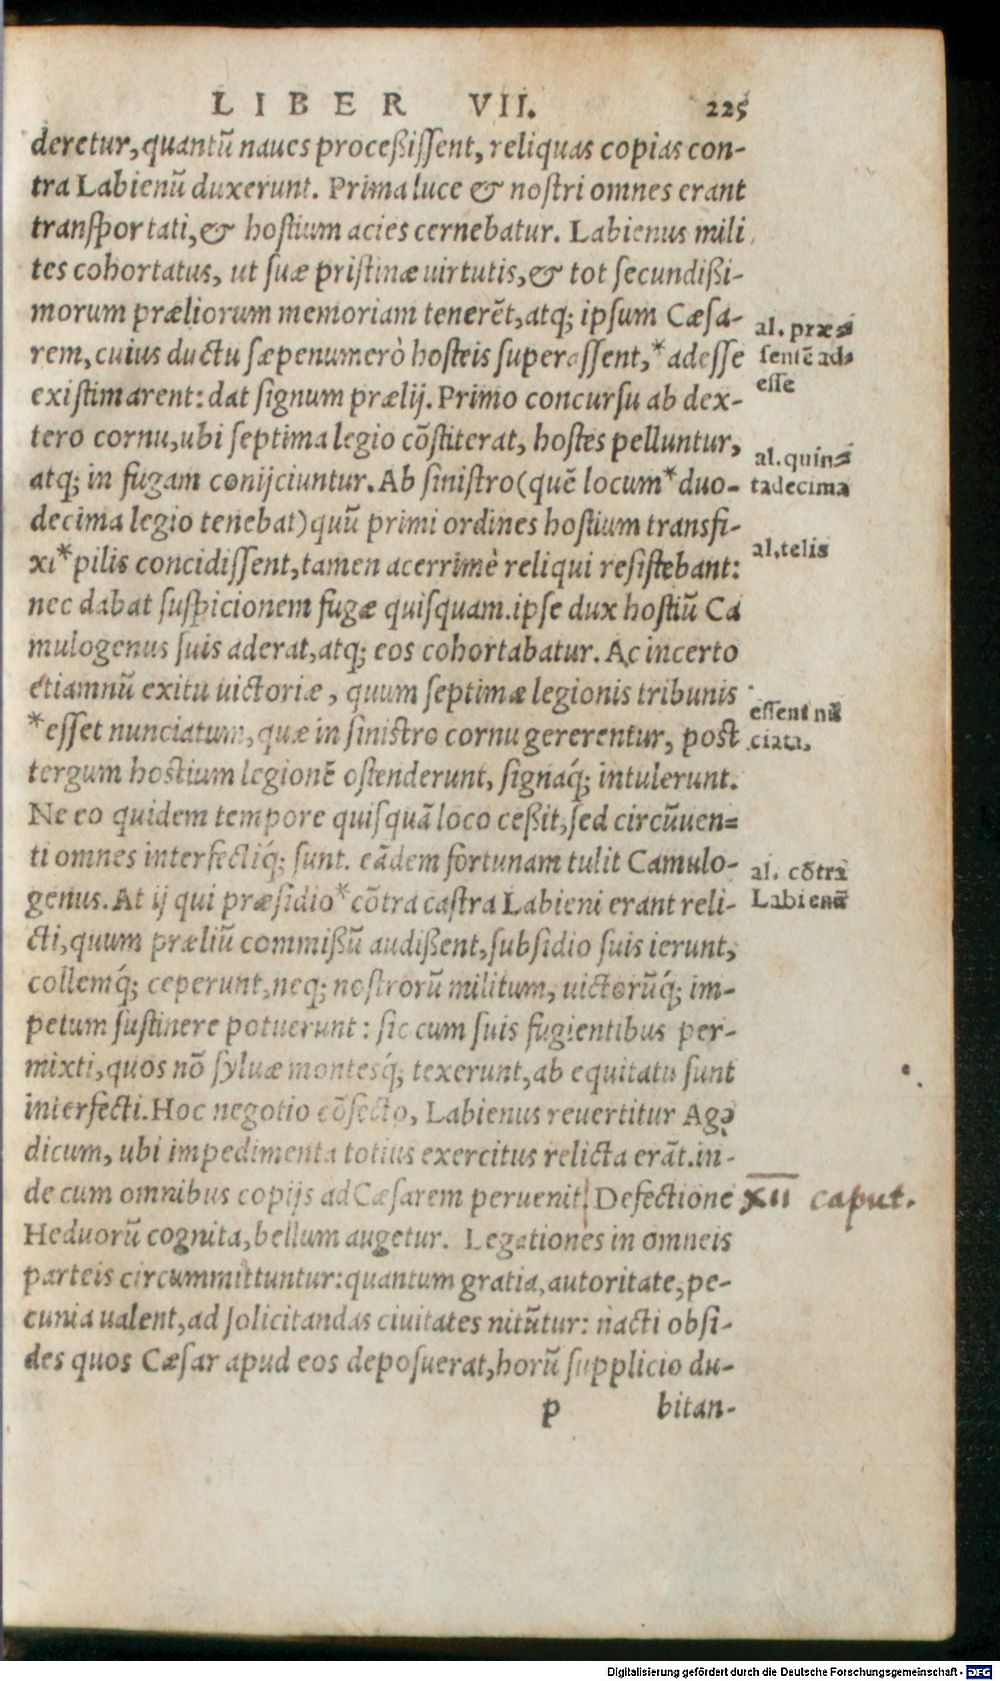 LIBER VII. 225
deretur, quantũ naues proceßiſſent, reliquas copias con-
tra Labienũ duxerunt. Prima luce & noſtri omnes erant
tranſportati, & hoſtium acies cernebatur. Labienus mili
tes cohortatus, ut ſuæ priſtinæ uirtutis, & tot ſecundißi-
morum præliorum memoriam tenerẽt, atq; ipſum Cæſa-
al. præ=
rem, cuius ductu ſæpenumerò hoſteis ſuperaſſent, *adeſſe
ſentẽ ad=
eſſe
exiſtimarent: dat ſignum prælij. Primo concurſu ab dex-
tero cornu, ubi ſeptima legio cõſtiterat, hoſtes pelluntur,
al. quin=
atq; in fugam conijciuntur. Ab ſiniſtro (quẽ locum *duo-
tadecima
decima legio tenebat) quũ primi ordines hoſtium transfi-
xi *pilis concidiſſent, tamen acerrimè reliqui reſiſtebant:
al. telis
nec dabat ſuſpicionem fugæ quiſquam. ipſe dux hoſtiũ Ca
mulogenus ſuis aderat, atq; eos cohortabatur. Ac incerto
etiamnũ exitu uictoriæ, quum ſeptimæ legionis tribunis
eſſent nũ
*eſſet nunciatum, quæ in ſiniſtro cornu gererentur, poſt
ciata.
tergum hoſtium legionẽ oſtenderunt, ſignaq́; intulerunt.
Ne eo quidem tempore quiſquã loco ceßit, ſed circũuen=
ti omnes interfectiq́; ſunt. eãdem fortunam tulit Camulo-
al. cõtra
genus. At ij qui præſidio *cõtra caſtra Labieni erant reli-
Labienũ
cti, quum præliũ commißũ audißent, ſubſidio ſuis ierunt,
collemq́; ceperunt, neq; noſtrorũ militum, uictorũq́; im-
petum ſuſtinere potuerunt: ſic cum ſuis fugientibus per-
mixti, quos nõ ſyluæ montesq́; texerunt, ab equitatu ſunt
interfecti. Hoc negotio cõfecto, Labienus reuertitur Age
dicum, ubi impedimenta totius exercitus relicta erãt. in-
de cum omnibus copijs ad Cæſarem peruenit. Defectione
XII caput.
Heduorũ cognita, bellum augetur. Legationes in omneis
parteis circummittuntur: quantum gratia, autoritate, pe-
cunia ualent, ad ſolicitandas ciuitates nitũtur: nacti obſi-
des quos Cæſar apud eos depoſuerat, horũ ſupplicio du-
p bitan-
Digitalisierung gefördert durch die Deutsche Forschungsgemeinschaft - DFG